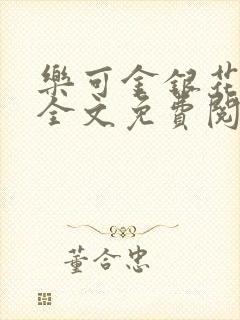 樂可金銀花
全文免費閱
董合忠